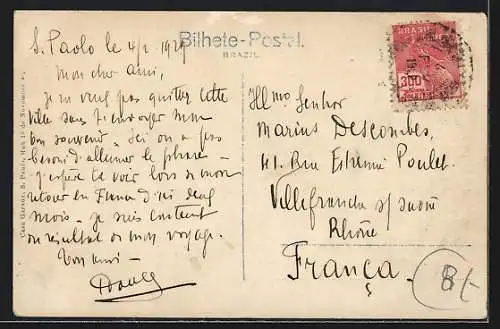 Bilhete-Postal.
BRAZIL
S. Paolo le 4/2 1929
Mon cher ami,
Je ne veux pas quitter cette
ville sans t'envoyer mon
bon souvenir - Ici on a pas
besoin d'allumer le phare -
J'espère te voir lors de mon
retour en France d'ici deux
mois - Je suis content
du résultat de mon voyage.
Ton ami -
Illmo Senhor
Marius Descombes,
41. Rue Etienne Poulet
Villefranche s/ Saone
Rhône
França.
BRASIL
300
8/-
Casa Garraux, S. Paulo, Rua 15 de Novembro